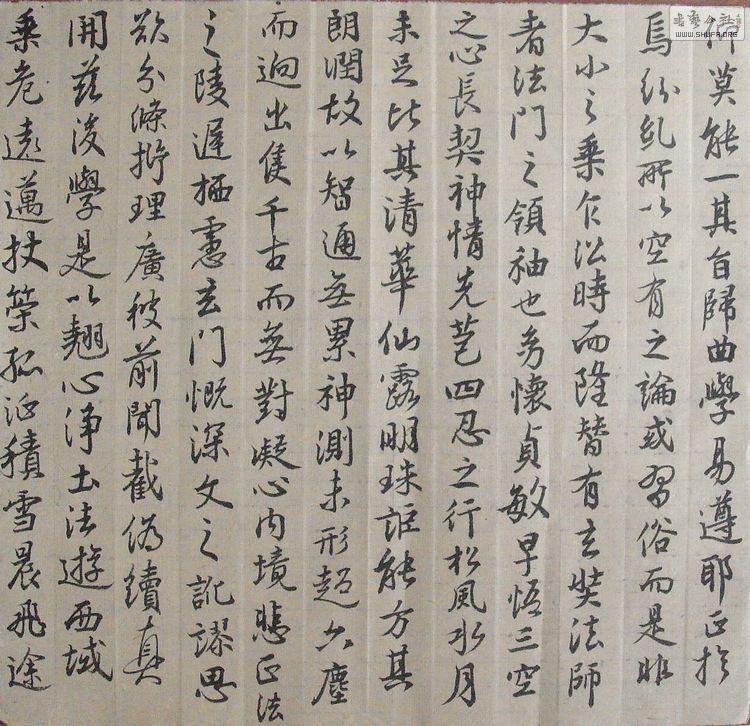 仰莫能一其旨歸曲學易遵耶正於
焉紛糺所以空有之論或習俗而是非
大小之乘乍沿時而隆替有玄奘法師
者法門之領袖也幼懷貞敏早悟三空
之心長契神情先苞四忍之行松風水月
未足比其清華仙露明珠詎能方其
朗潤故以智通無累神測未形超六塵
而迥出隻千古而無對凝心內境悲正法
之陵遲栖慮玄門慨深文之訛謬思
欲分條析理廣彼前聞截偽續真
開茲後學是以翹心淨土法遊西域
乘危遠邁杖策孤征積雪晨飛途
WWW.SHUFA.ORG